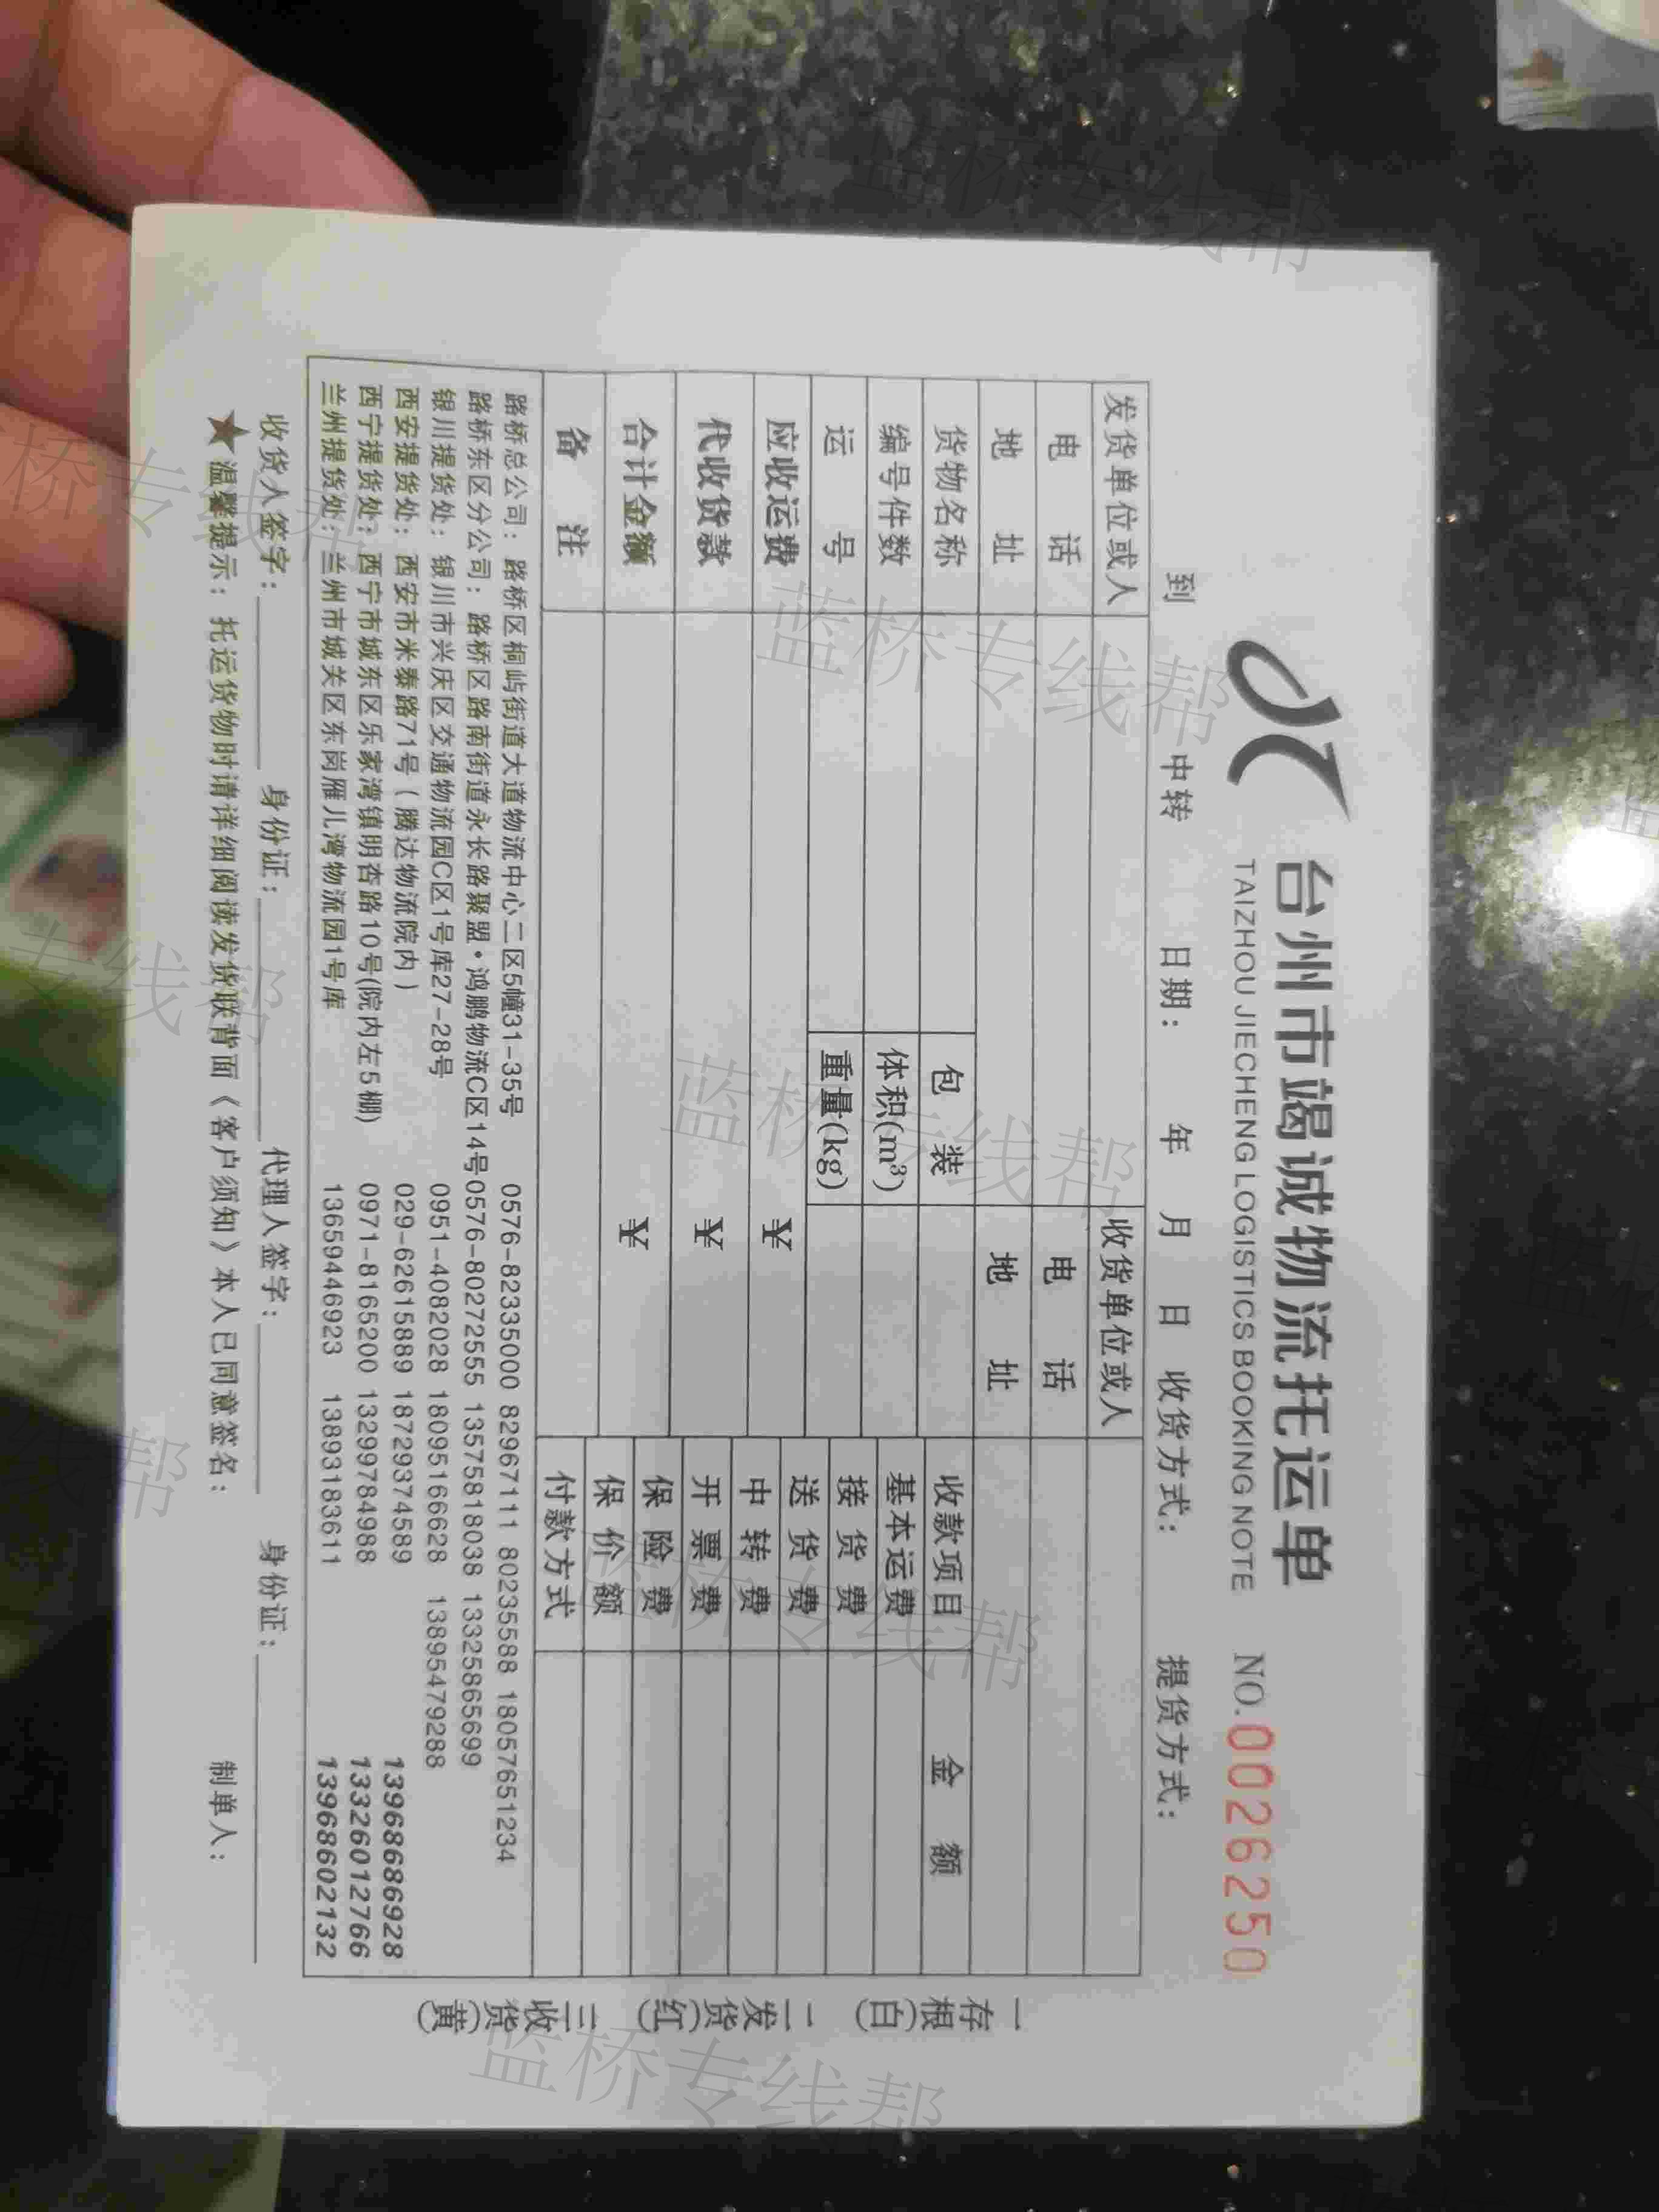 台州市竭诚物流托运单
TAIZHOU JIECHENG LOGISTICS BOOKING NOTE NO.0026250
到 中转 日期: 年 月 日 收货方式: 提货方式:
发货单位或人 收货单位或人
电 话 电 话
地 址 地 址
货物名称 包 装 收款项目 金 额
编号件数 体积(m³) 基本运费
运 号 重量(kg) 接 货 费
应收运费 ¥ 送 货 费
中 转 费
代收货款 ¥ 开 票 费
合计金额 ¥ 保 险 费
保 价 额
备 注 付款方式
路桥总公司: 路桥区桐屿街道大道物流中心二区5幢31-35号 0576-82335000 82967111 80235588 18057651234
路桥东区分公司: 路桥区路南街道永长路聚盟·鸿鹏物流C区14号0576-80272555 13575818038 13325865699
银川提货处: 银川市兴庆区交通物流园C区1号库27-28号 0951-4082028 18095166628 13895479288
西安提货处: 西安市米泰路71号(腾达物流院内) 029-62615889 18729374589 13968686928
西宁提货处: 西宁市城东区乐家湾镇明杏路10号(院内左5棚) 0971-8165200 13299784988 13326012766
兰州提货处: 兰州市城关区东岗雁儿湾物流园1号库 13659446923 13893183611 13968602132
收货人签字: 身份证: 代理人签字: 身份证:
★温馨提示: 托运货物时请详细阅读发货联背面《客户须知》本人已同意签名: 制单人:
一存根(白) 二发货(红) 三收货(黄)
蓝桥专线帮
蓝桥专线帮
蓝桥专线帮
蓝桥专线帮
蓝桥专线帮